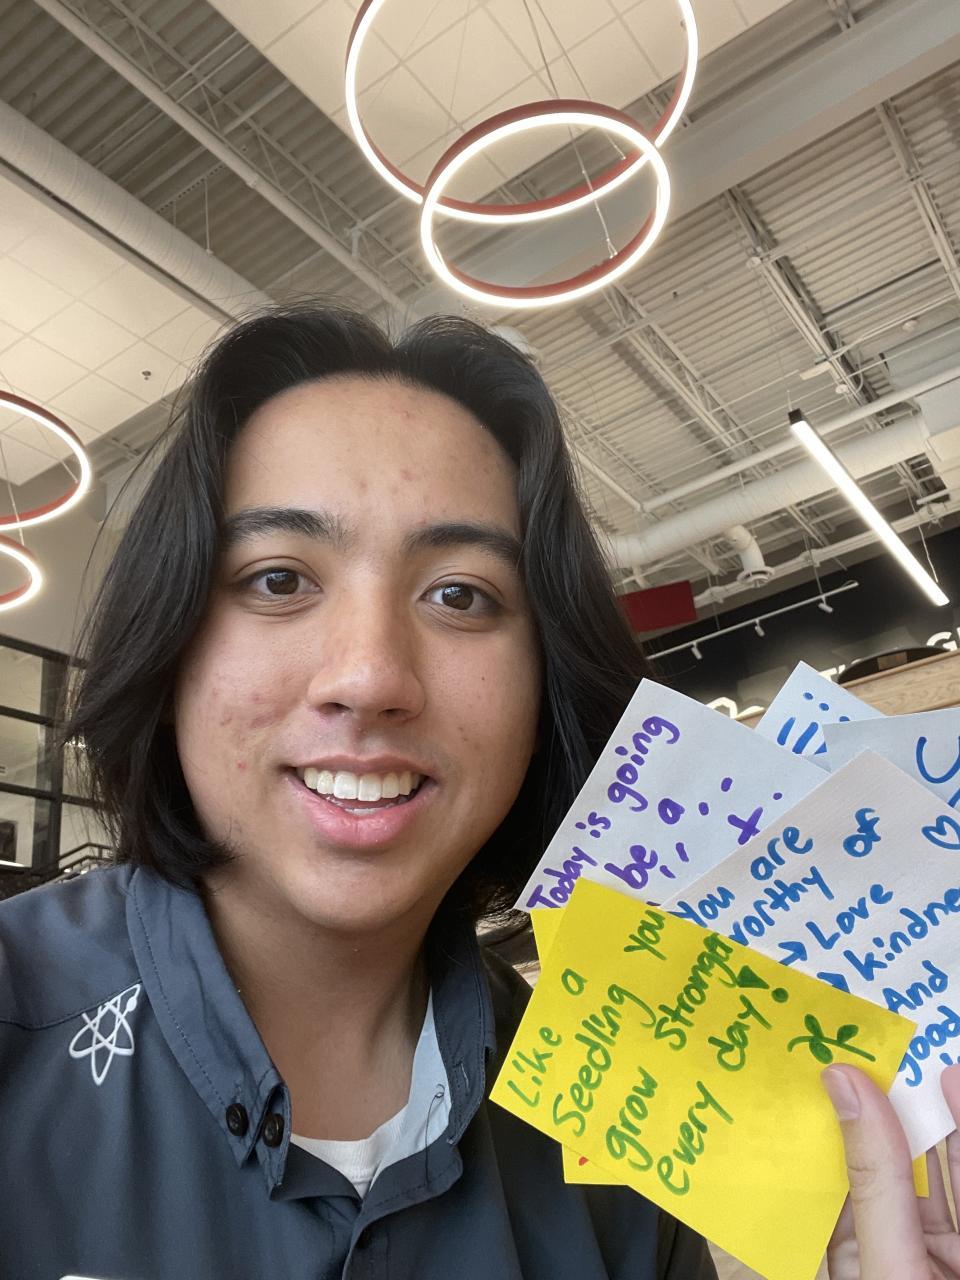 Today is going
be a
You are
worthy of
→ Love
→ kindne
And
good
Like a
Seedling you
grow stronger
every day!